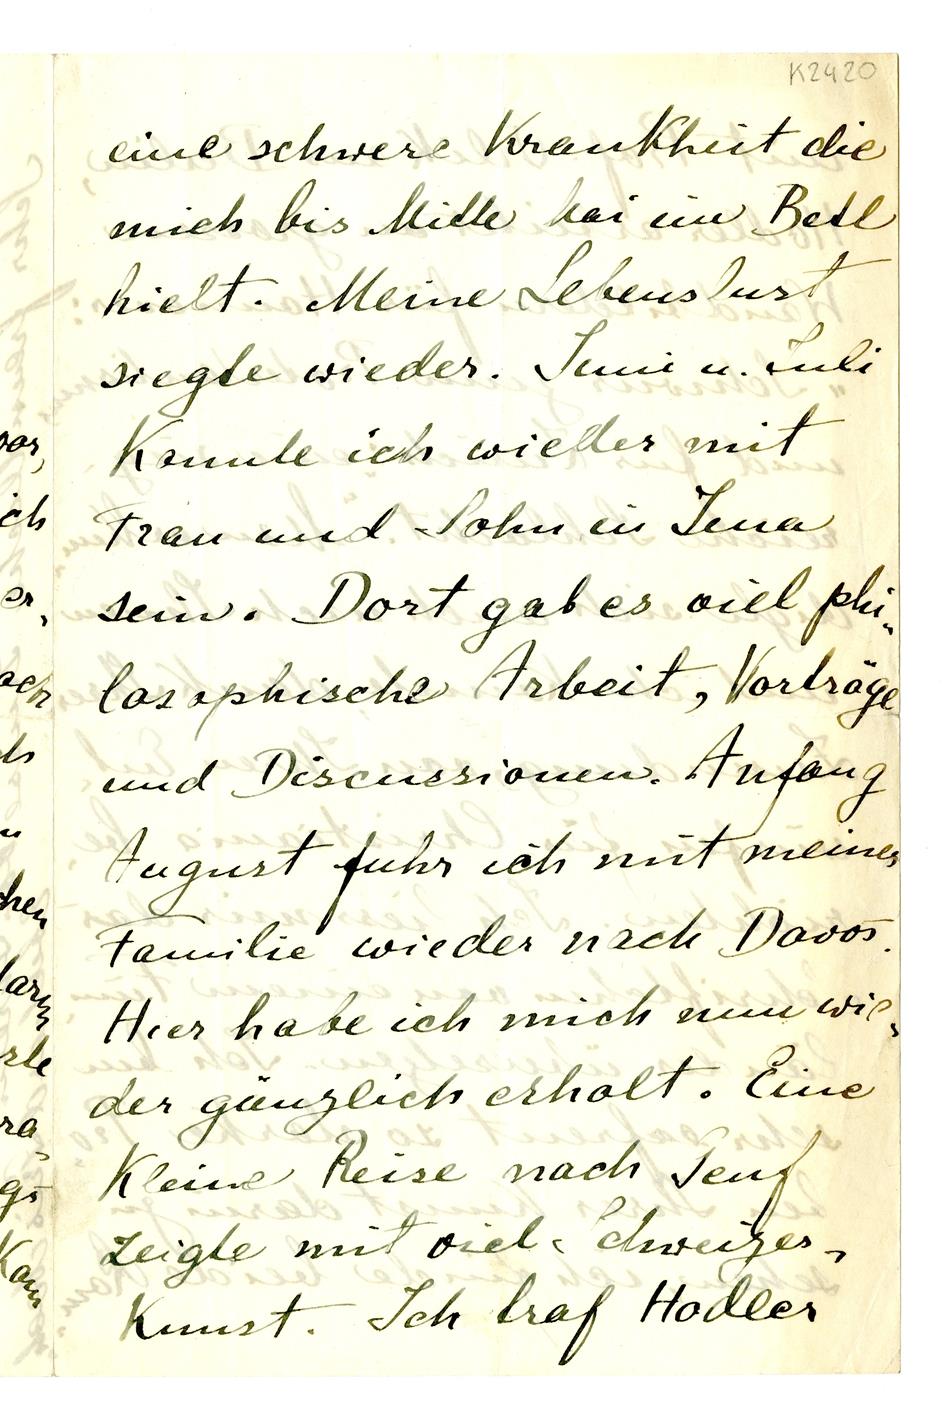 K2420
eine schwere Krankheit die
mich bis Mitte Mai im Bett
hielt. Meine Lebenslust
siegte wieder. Juni u. Juli
konnte ich wieder mit
Frau und Sohn in Jena
sein. Dort gab es viel phi-
losophische Arbeit, Vorträge
und Discussionen. Anfang
August fuhr ich mit meiner
Familie wieder nach Davos.
Hier habe ich mich nun wie-
der gänzlich erholt. Eine
kleine Reise nach Genf
zeigte mit viel Schweizer-
Kunst. Ich traf Hodler